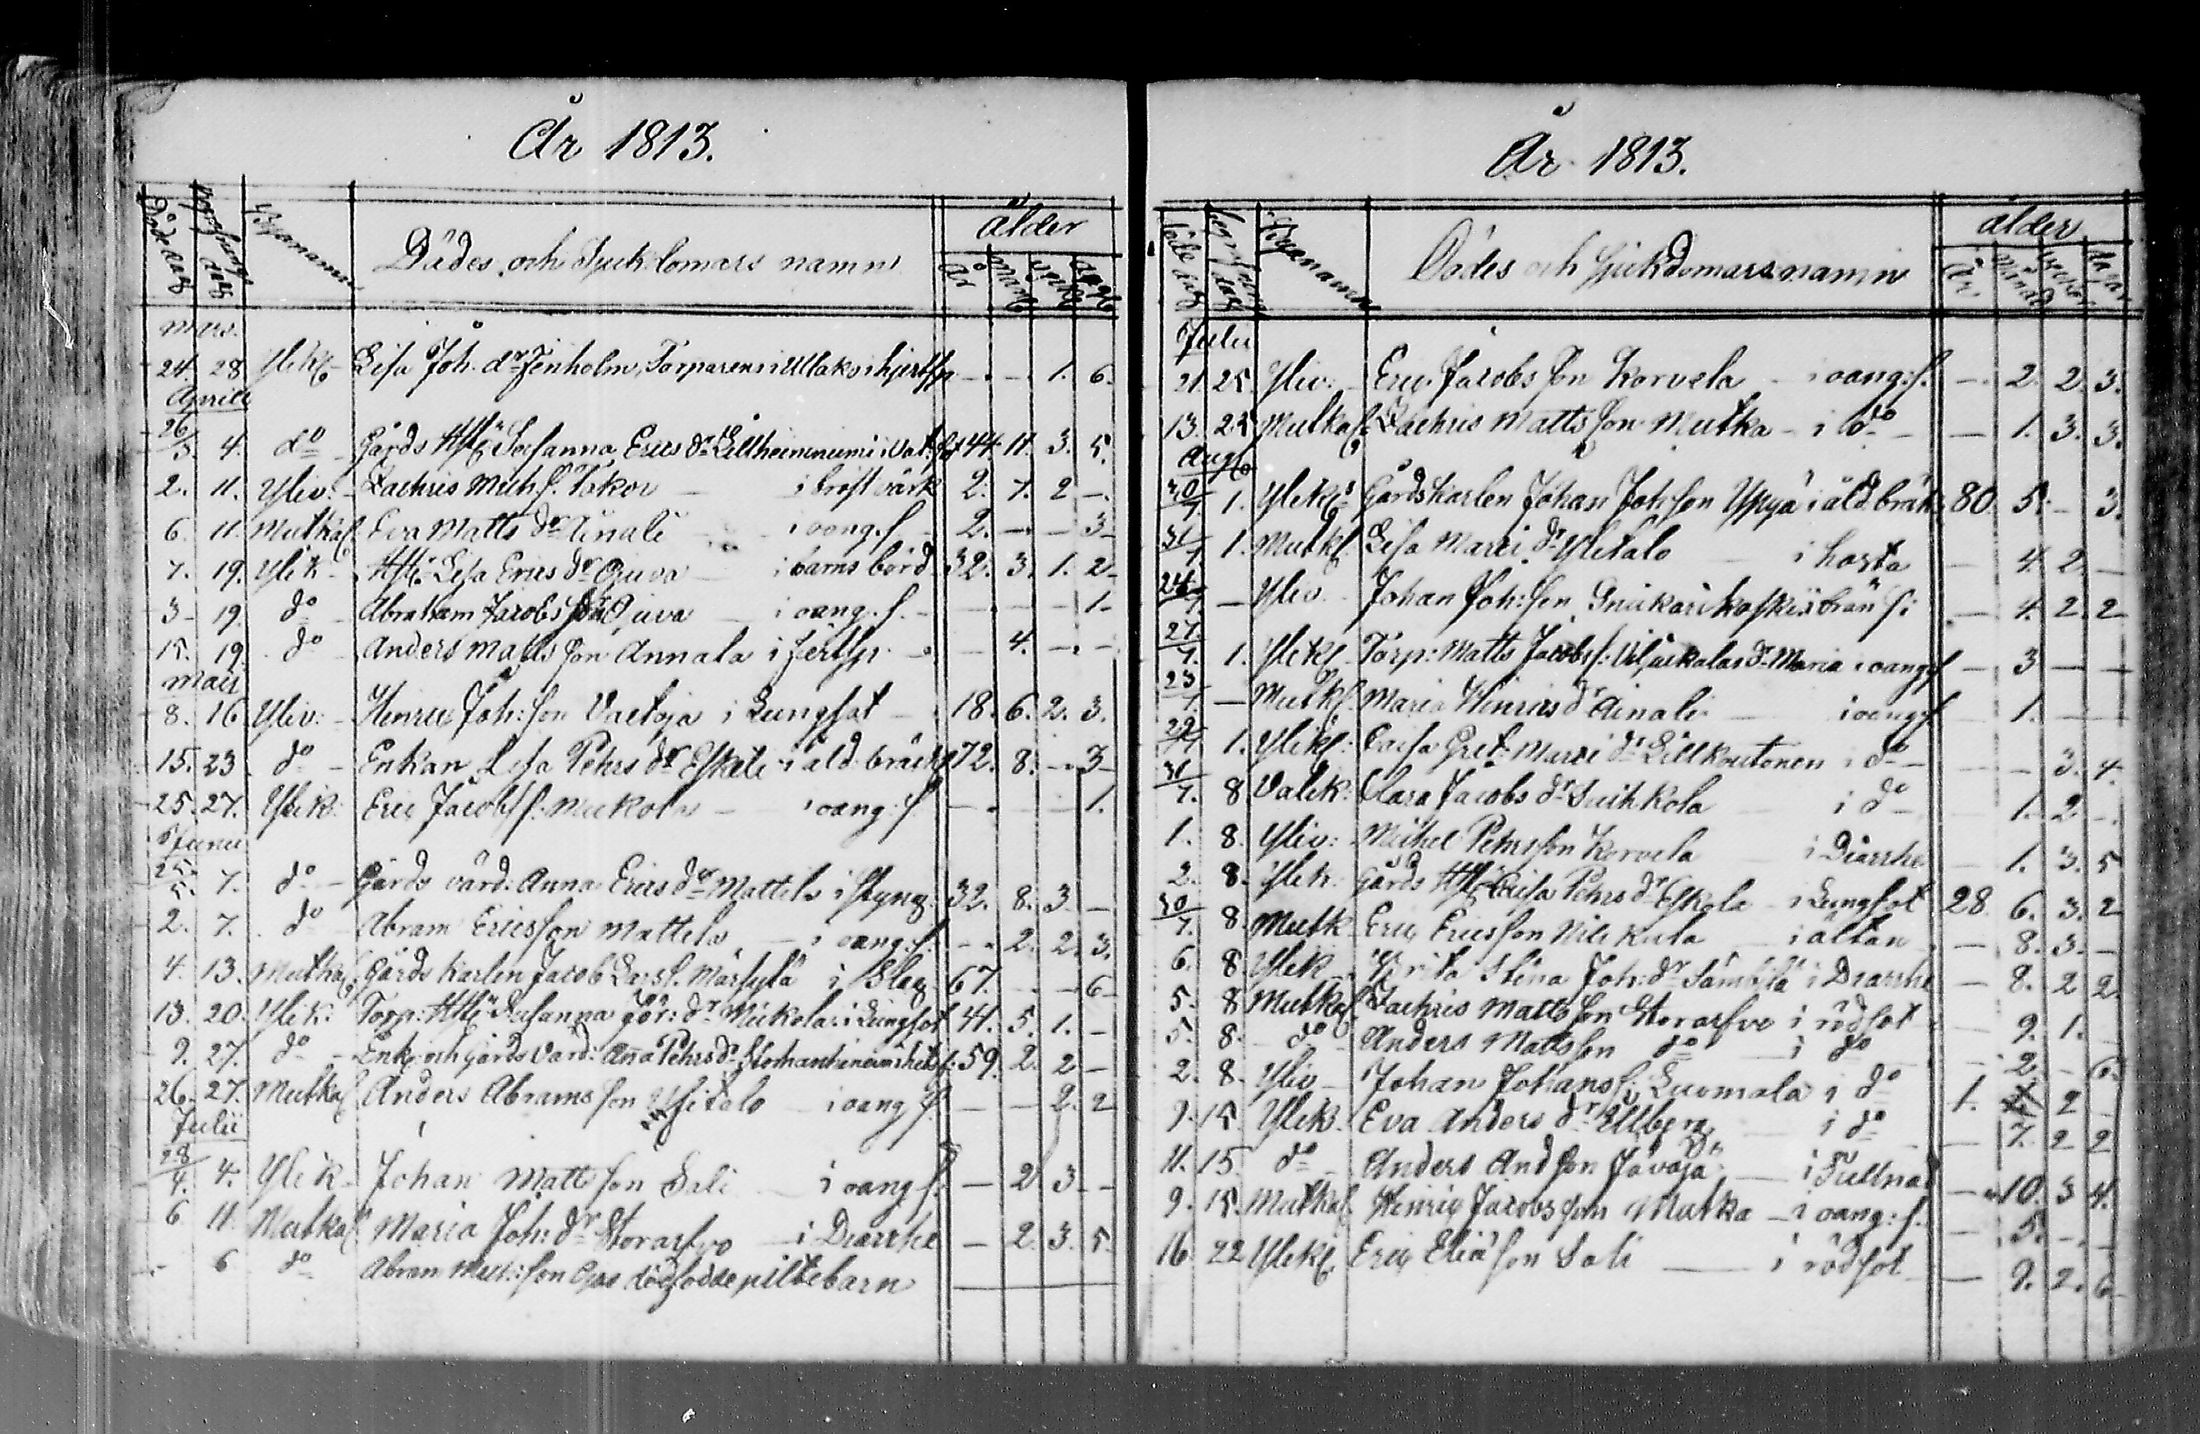 År 1813.
Döde dag begrafnings dag Bynamn Dödes och Sjukdomars namn ålder
år mån veck dag
Mars.
24. 28 Ylik. Lisa Joh. dr Fenholm, Torparens i Ullaks i hjertsp — — 1. 6.
Aprill
26/3 4. do Gårds Hust. Susanna Erics dr Lillheinineimi i Vat.sot 44 11. 3. 5.
2. 11. Yliv: Zachris Mich S. Tokoi — i bröst värk 2. 7. 2 —
6. 11. Mutkal. Eva Matts dr Ainali — i oang. s. 2. — — 3
7. 19. Ylik — Hust. Lisa Erics dr Ojuva — i barns börd 32. 3. 1. 2
3 19. do Abraham Jacobsson Ojuva — i oang. s. — — — 1
15. 19. do Anders Matts son Annala i hertsp. — 4. — —
Maii
8. 16 Yliv: Henric Joh: son Vaetoja i Lungsot — 18. 6. 2. 3.
15. 23 do Enkan Lisa Pehrs dr Eskeli i åld. bräck 72. 8. — 3
25. 27. Ylik: Eric Jacobs s. Mickola — i oang. s. — — — 1.
Junii
25/5. 7. do Gårds värd: Anna Erics dr Mattela i styng 32. 8. 3 —
2. 7. do Abram Ericsson Mattela — i oang. s. — 2. 2. 3.
4. 13. Mutkal. Gårds karlen Jacob Lars s. Märsylä i Slag 67. — — 6
13. 20. Ylik: Torp: Hust. Susanna Jör: dr Mickola i Lungsot 41. 5. 1. —
9. 27. do Enk. och gårds värd: Anna Pehrs dr i hets s. 59. 2. 2 —
26. 27. Mutkal. Anders Abrams son Ylitalo — i oang. s. — — 2. 2
Julii
28/4. 4. Ylik Johan Matts son Sali — i oang. s. — 2 3 —
6 11. Mutkal. Maria Joh: dr Storarfvo — i Diarrhe — 2. 3. 5.
6 do Abram Mich: son dödfödde piltebarn
År 1813.
Döde dag begrafnings dag Bynamn Dödes och Sjukdomars namn ålder
år månad veckor dagar
Julii
21 25 Yliv: Eric Jacobs son Korvela — i oang. s. — 2. 2 3.
13. 25 Mutkal. Zachris Matts son Mutka — i do — 1. 3. 3.
Aug
30/7 1. Ylik. Gårdskarlen Johan Joh. son Yppyä i åld. bräk 80. 5. — 3.
31/7. 1. Mutkl. Lisa Marci dr Ylitalo — i hosta — 4. 2. —
24/7 — Yliv. Johan Joh: son i bränn s: — 4. 2. 2
27/7. 1. Ylik. Torp: Matts Jacobs s: Viljaikalas dr Maria i oang. s. — 3 — —
23/7 — Mutkl. Maria Hinrics dr Ainali — i oang. s. 1. — —
22/7 1. Ylik. Caisa Gret. Marci dr Lillkoutonen i do — — 3. 4.
31/7. 8 Valik. Clara Jacobs dr Suihkola — i do — 1. 2 —
1. 8 Yliv: Michel Pehrsson Korvela — i Diarrhe — 1. 3. 5
2. 8. Ylik. Gårds Hust. Caisa Pehrs dr Eskola — i Lungsot 28. 6. 3. 2
30/7. 8. Mutk. Eric Ericsson Nilikula — i ältan — 8. 3. —
6. 8 Ylik — Grita Stina Joh: dr Sämbilä i Diarrhe — 8. 2 2
5. 8. Mutkal. Zachris Matts son Storarfvo i rödsot — 9. 1. —
5. 8. do Anders Matts son do — i do — 2. — 6.
2. 8. Yliv Johan Johans s. Luomala i do 1. 2
9. 15. Ylik. Eva Anders dr Ellberg — i do — 7. 2 2
11. 15 do Anders And. son Jävaja — i Tullnad — 10. 3 4.
9. 15. Mutkal. Henric Jacobs son Mutka — i oang. s. — 5. — —
16 22 Ylik. Eric Elia son Sali — i rödsot — 9. 2. 6